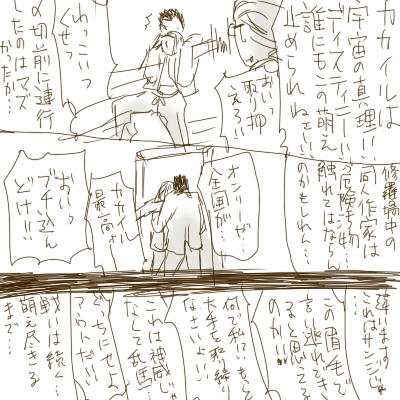 カカイルは
宇宙の真理!!
ディスティニー!!
誰にもこの萌え
止められねェ!!
おいっ
取り押
えろ!!
わっこいつ
くせっ
〆切前に連行
したのはマズ
かったか…
修羅場中の
同人作家は
触れてはならん
のかもしれん…
オンリーが…
企画が…
カカイル
最高…
おいっ
ブチ込ん
どけ!!
違います
これはサンジじゃ
この眉毛で
言い逃れでき
ると思ってる
のか!!
何で私に!!もっと
大手を取り締り
なさいよ!!
これは神威じゃ
なくて乱馬…
どっちにせよ
アウトだ!!
戦いは続く…
萌え尽きる
まで…